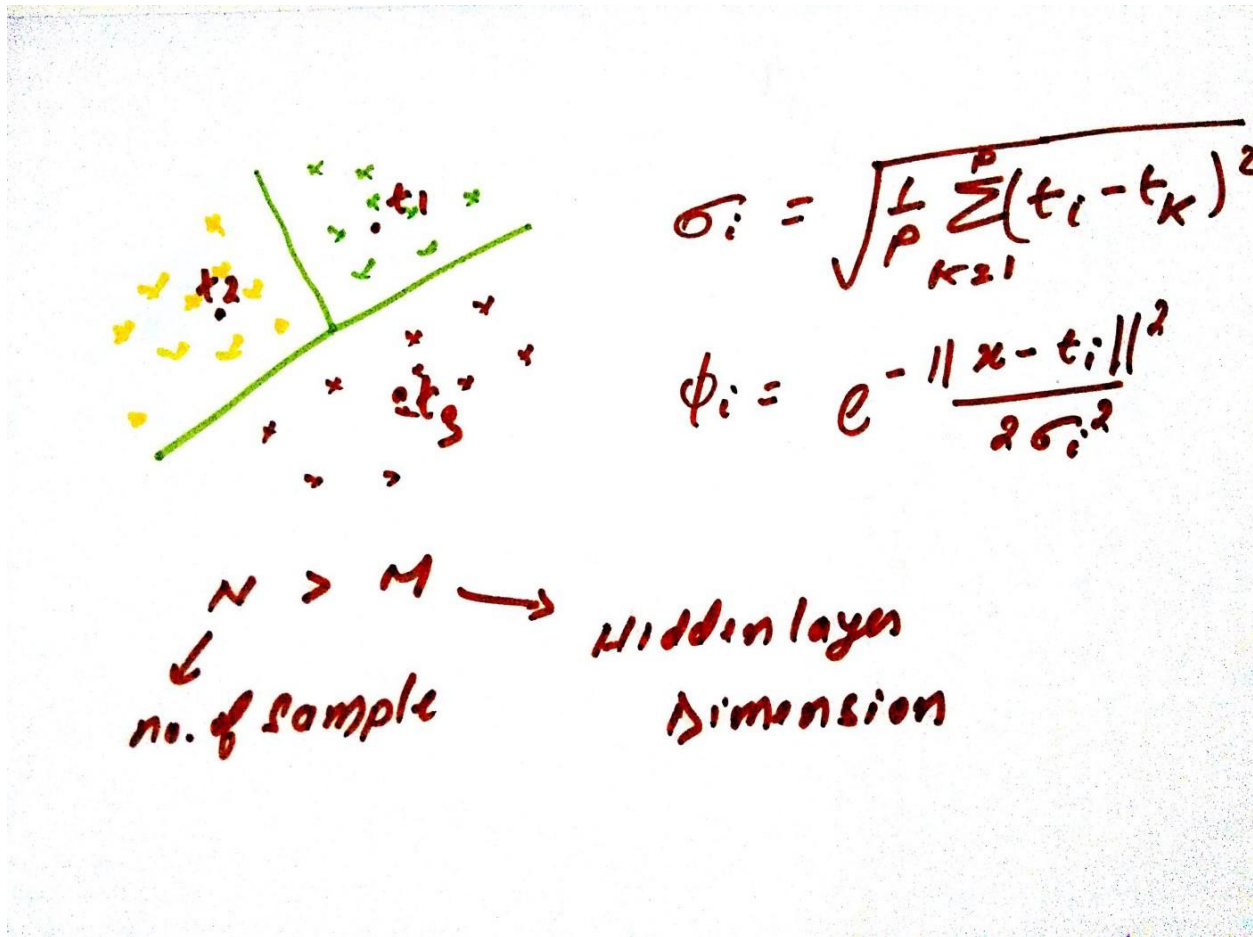 t1
t2
t3
σi = √(1/P Σ_{K=1}^{P} (ti - tK)²)
φi = e^{-||x - ti||² / 2σi²}
N > M → Hidden layer
Dimension
↙
no. of sample